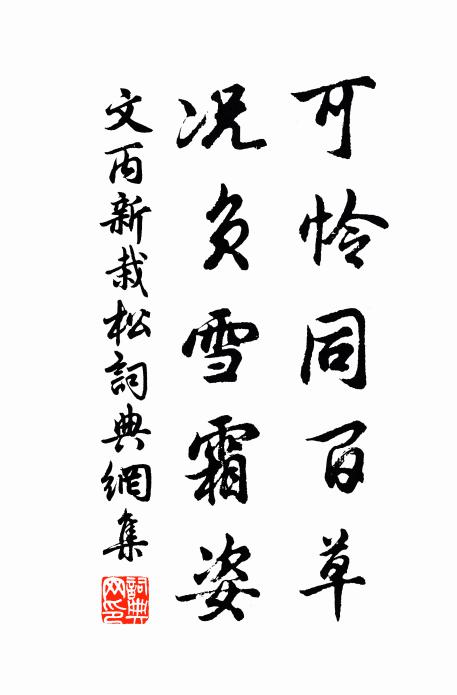 可怜同百草
况负雪霜姿
文丙新栽松詞典網集
詞典網印